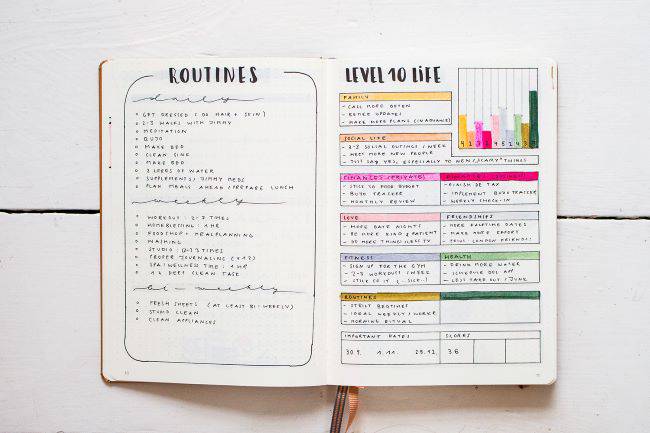 ROUTINES
daily
GET DRESSED (DO HAIR + SKIN)
2-3 WALKS WITH JIMMY
MEDITATION
BUJO
MAKE BED
CLEAN SINK
MAKE BED
2 LITERS OF WATER
SUPPLEMENTS / JIMMY MEDS
PLAN MEALS AHEAD / PREPARE LUNCH
weekly
WORKOUT: 2-3 TIMES
: 1 HR
FOODSHOP + MEALPLANNING
WASHING
STUDIO: TIMES
PROPER JOURNALING
SPA/WELLNESS TIME: 1 HR
1 X DEEP CLEAN TASK
bi-weekly
FRESH SHEETS (AT LEAST BI-WEEKLY)
STUDIO CLEAN
CLEAN APPLIANCES
LEVEL 10 LIFE
FAMILY
- CALL MORE OFTEN
- UPDATES
- MAKE MORE PLANS (IN ADVANCE)
SOCIAL LIFE
- 2-3 SOCIAL OUTINGS / WEEK
- MEET MORE NEW PEOPLE
- JUST SAY YES, ESPECIALLY TO NEW/"SCARY" THINGS
FINANCES (PRIVATE)
- STICK TO FOOD BUDGET
- BUJO TRACKER
- MONTHLY REVIEW
- TAX
- IMPLEMENT BUJO TRACKER
- WEEKLY CHECK-IN
LOVE
- MORE DATE NIGHTS
- BE MORE KIND & PATIENT
- DO MORE THINGS
FRIENDSHIPS
- MORE DATES
- MAKE MORE EFFORT
- LONDON FRIENDS!
FITNESS
- SIGN UP FOR THE GYM
- 2-3 WORKOUTS / WEEK
- STICK TO IT
HEALTH
- DRINK MORE WATER
- SCHEDULE
- LESS TAKE OUT / JUNK
ROUTINES
- STRICT BEDTIMES
- IDEAL WEEKLY
- MORNING RITUAL
IMPORTANT DATES
30.9. 1.11.
SCORES
36